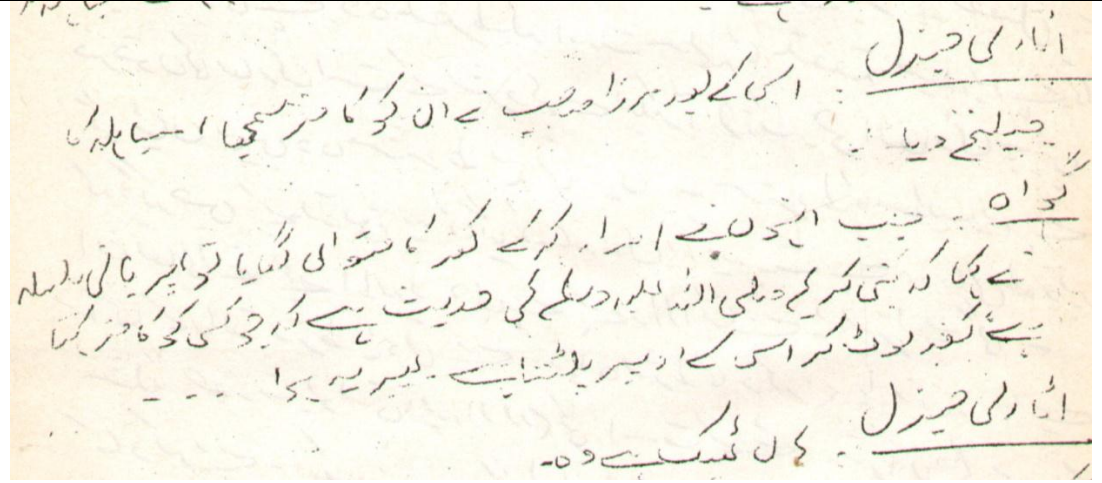 اٹارنی جنرل
اس کے بعد مرزا صاحب نے ان کو کافر سمجھا، مباہلہ کا
چیلنج دیا۔
گواہ۔ جب انہوں نے اصرار کرکے کفر کا فتویٰ لگایا تو پھر بانی سلسلہ
نے کہا کہ نبی کریم صلی اللہ علیہ وسلم کی حدیث ہے کہ جو کسی کو کافر کہتا
ہے کفر لوٹ کر اس کے اوپر پلٹتا ہے۔ پھر یہ ہوا
اٹارنی جنرل۔ ہاں ٹھیک ہے وہ۔